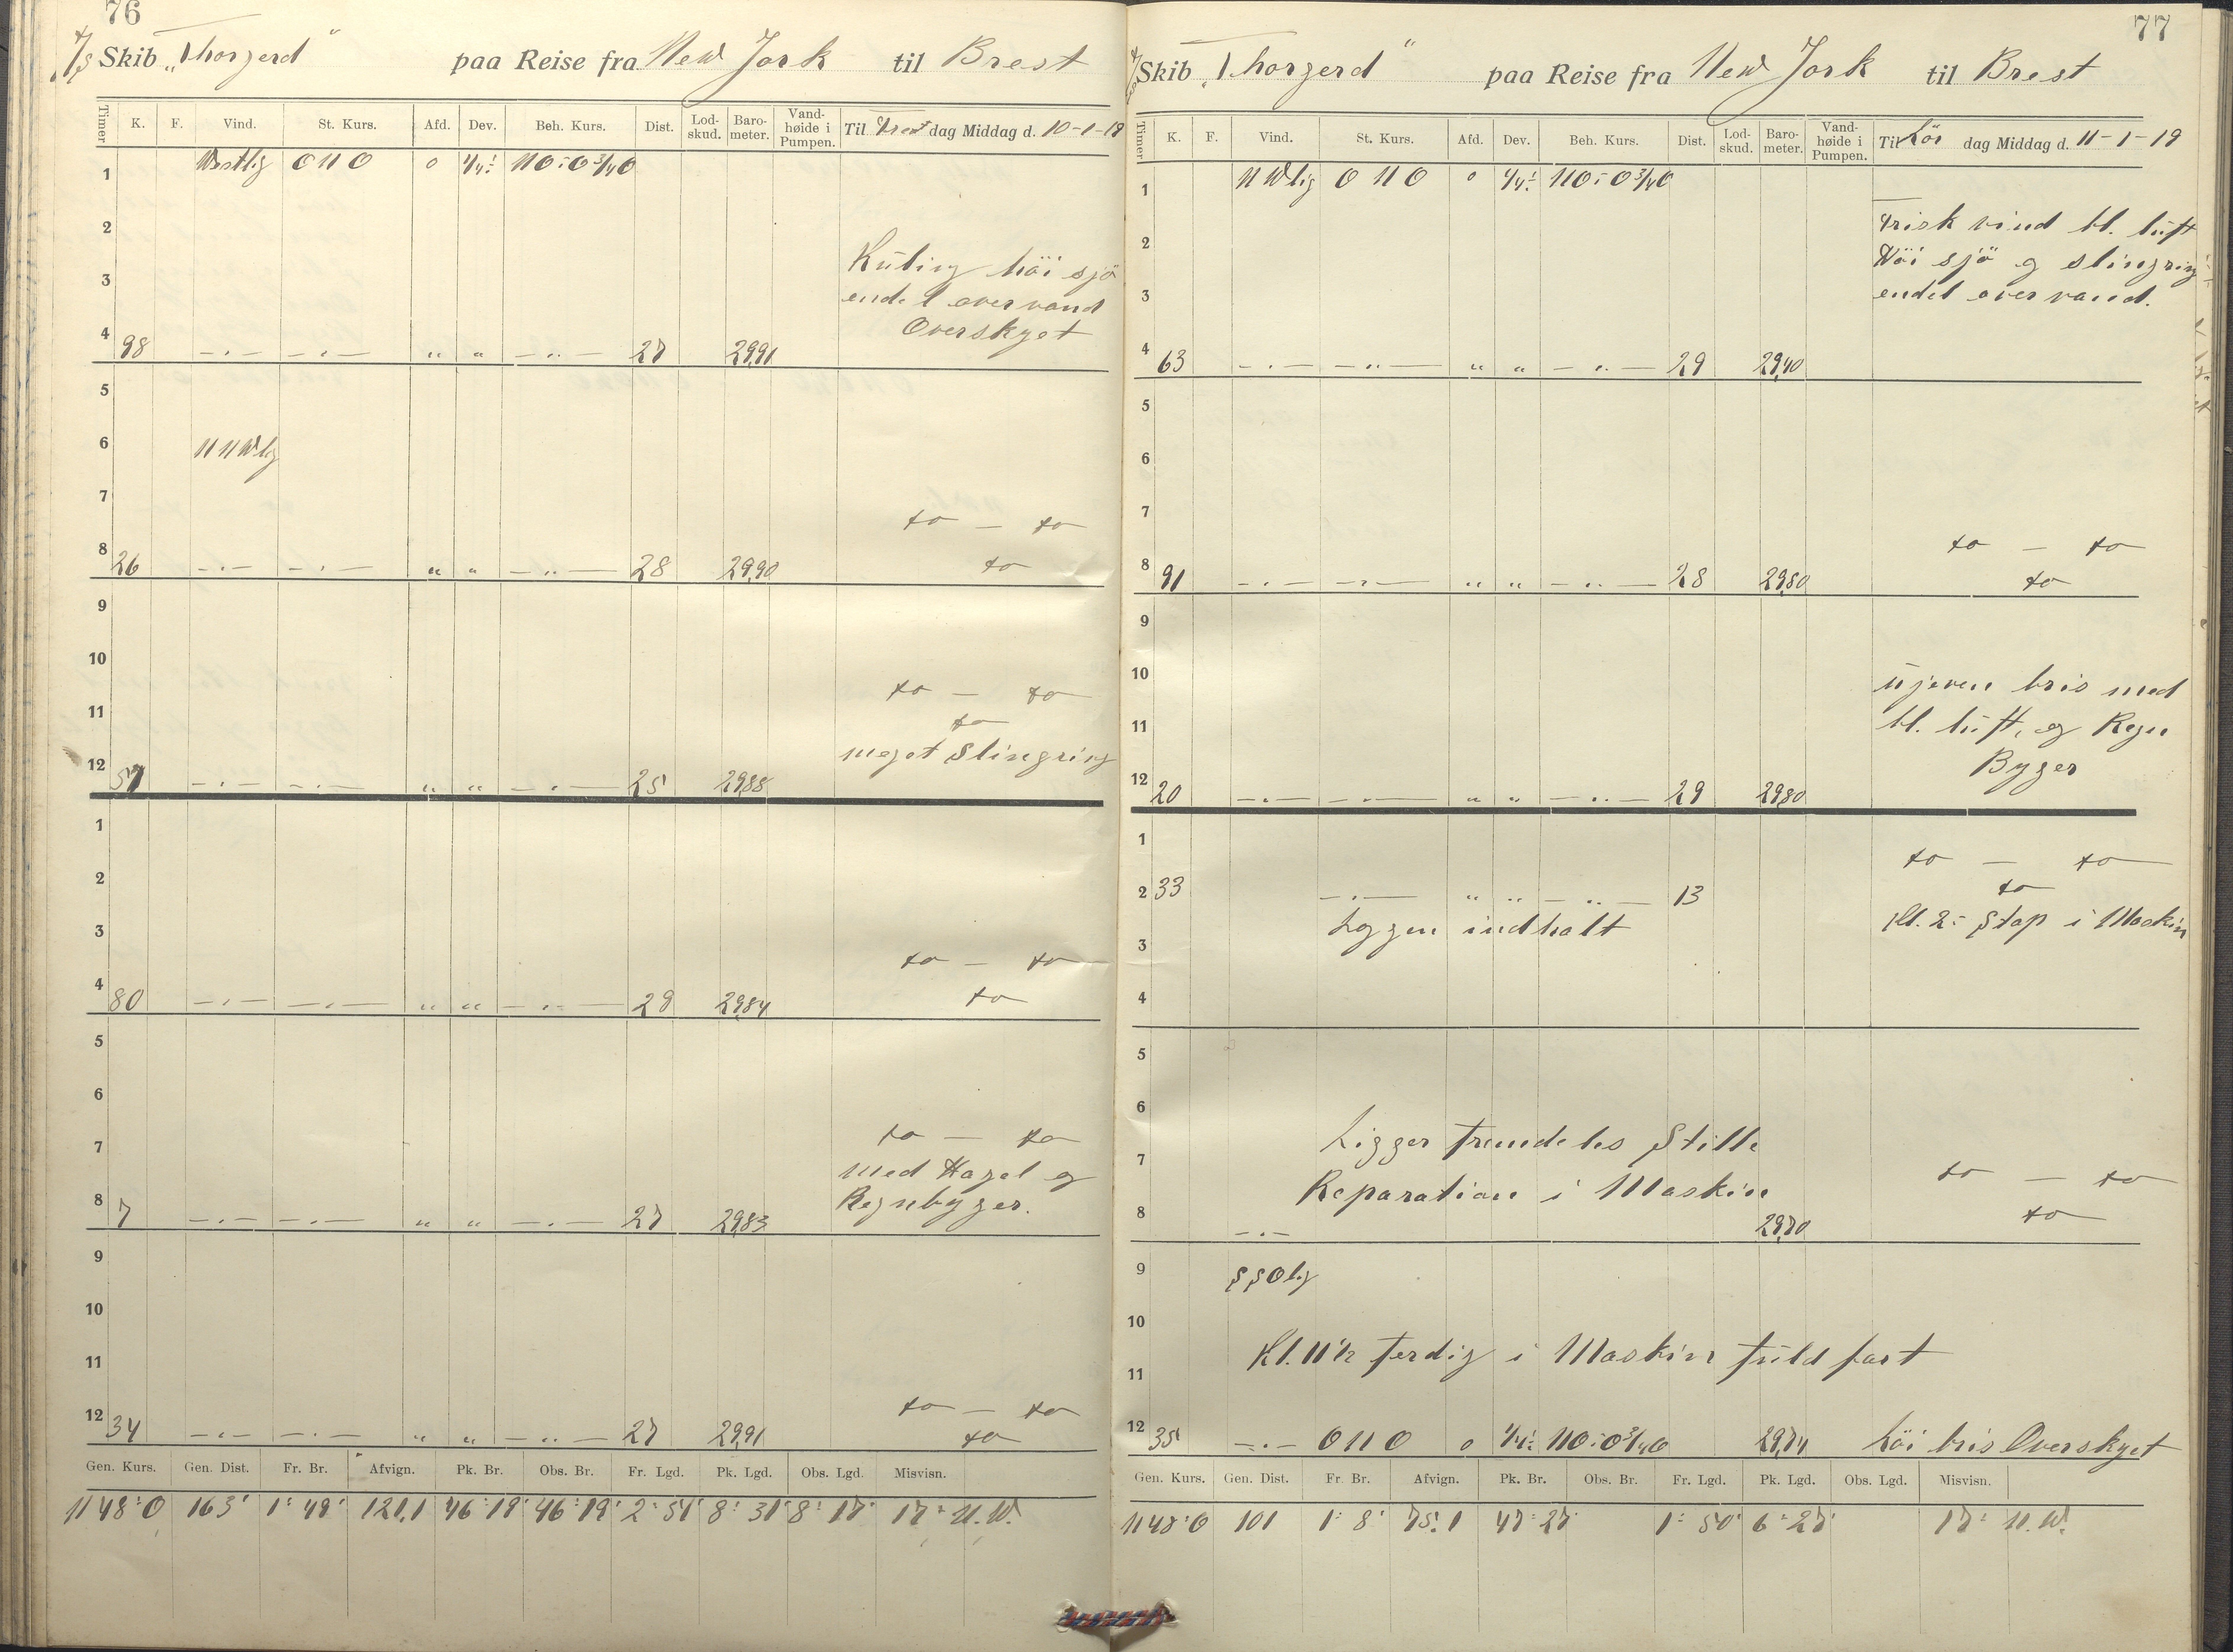 76
D/S Skib „Thorgerd" paa Reise fra New York til Brest
Timer K. F. Vind. St. Kurs. Afd. Dev. Beh. Kurs. Dist. Lod-skud. Baro-meter. Vand-høide i Pumpen. Til Fredag Middag d. 10-1-19
1 Vestlig ONO 0 NO:O 3/4 O
2
Kuling höi sjö
3
endel overvand
Overskyet
4 98 —.— —.— " " —..— 27 29,91
5
6 NNWlig
7
do — do
8 26 —.— —.— " " —..— 28 29,90 do
9
10
do — do
11
do
meget Slingring
12 51 —.— —.— " " —.— 25 29,88
1
2
3
do — do
4 80 —.— —.— " " —.— 29 29,84 do
5
6
7 do — do
med Hagel og
8 7 —.— —.— " " —.— 27 29,83 Regnbyger.
9
10
11
do — do
12 34 —.— —.— " " —..— 27 29,91 do
Gen. Kurs. Gen. Dist. Fr. Br. Afvign. Pk. Br. Obs. Br. Fr. Lgd. Pk. Lgd. Obs. Lgd. Misvisn.
N 48° O 163' 1° 49' 121,1 46° 19' 46° 19' 2° 51' 8° 31' 8° 17' 17° N.W.
77
D/S Skib „Thorgerd" paa Reise fra New York til Brest
Timer K. F. Vind. St. Kurs. Afd. Dev. Beh. Kurs. Dist. Lod-skud. Baro-meter. Vand-høide i Pumpen. Til Lör dag Middag d. 11-1-19
1 NWlig ONO 0 NO:O 3/4 O
Frisk vind bl. luft
2
Höi sjö og slingring
3 endel overvand.
4 63 —.— —..— " " —..— 29 29,40
5
6
7
do — do
8 91 —.— —.— " " —..— 28 29,80 do
9
10 ujeven bris med
11 bl. luft, og Regn
Byger
12 20 —.— —.— " " —..— 29 29,80
1
do — do
2 33 —.— " " —..— 13 do
Loggen indhalt Kl. 2: Stop i Maskin
3
4
5
6
Ligger fremdeles Stille
7 do — do
Reparation i Maskin
8 —.— 29,70 do
9 SSOlig
10
Kl. 11 1/2 ferdig i Maskin fuld fart
11
12 35 —.— ONO 0 NO:O 3/4 O 29,74 Löi bris Overskyet
Gen. Kurs. Gen. Dist. Fr. Br. Afvign. Pk. Br. Obs. Br. Fr. Lgd. Pk. Lgd. Obs. Lgd. Misvisn.
N 48° O 101 1° 8' 75,1 47° 27' 1° 50' 6° 27' 17° N.W.